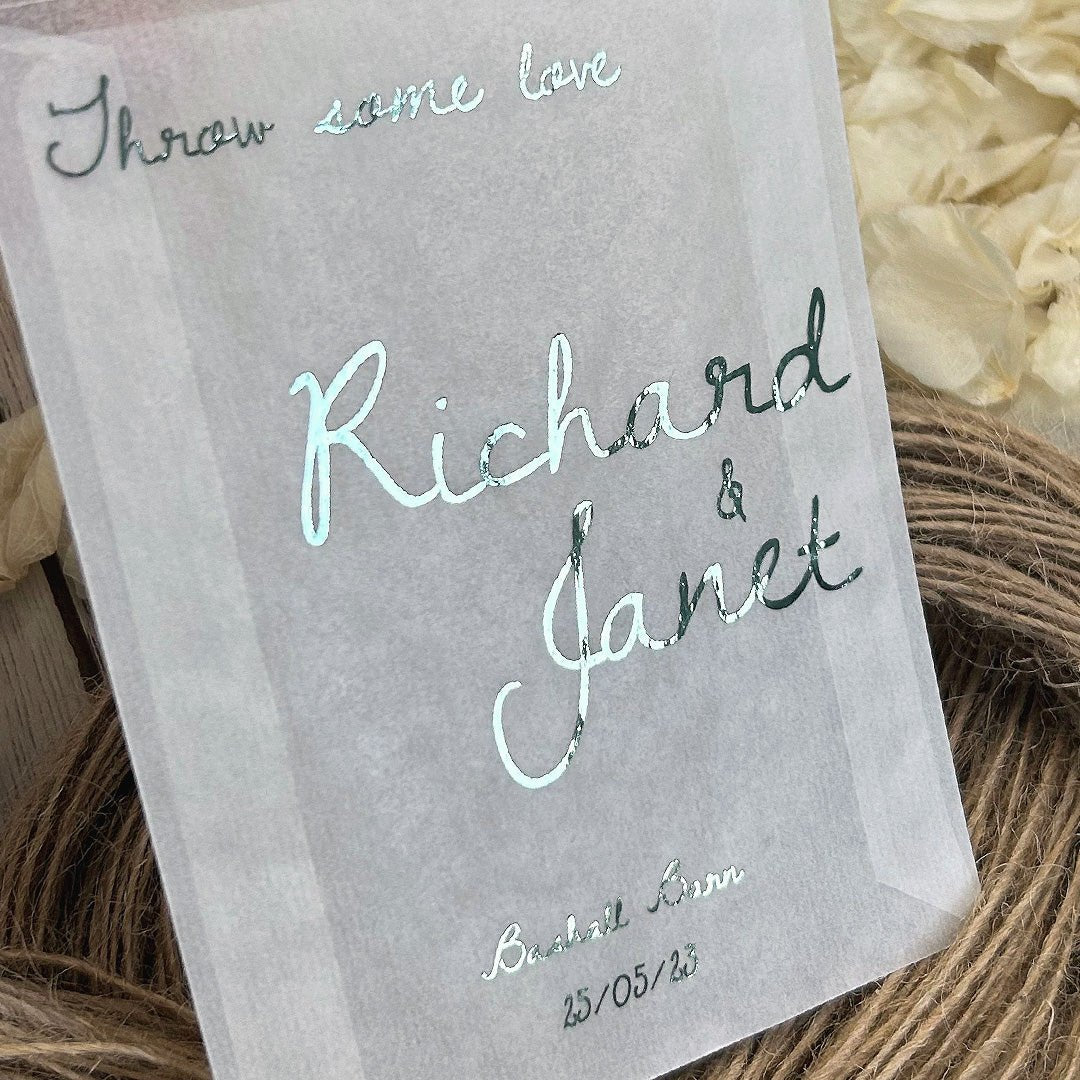 Throw some love
Richard
&
Janet
Bashall Barn
25/05/23